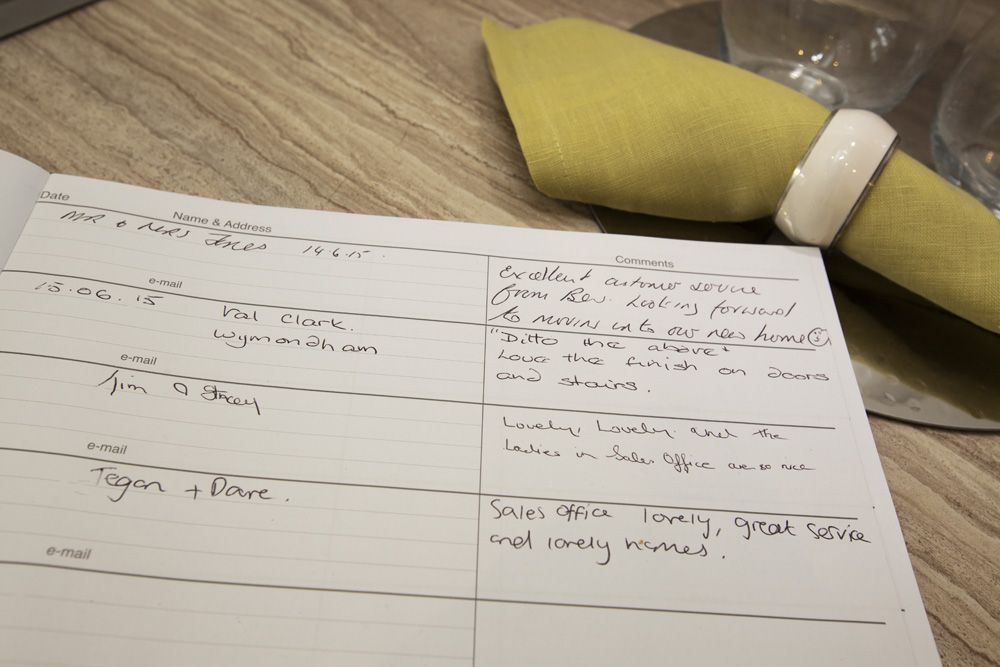 Date Name & Address Comments
MR & MRS Jones 14.6.15.
Excellent customer service
from Bev. Looking forward
to moving into our new home
e-mail
15.06.15 Val Clark.
Wymondham
"Ditto the above"
Love the finish on doors
and stairs.
e-mail
Jim & Stacey
Lovely, Lovely and the
Ladies in Sales Office are so nice
e-mail
Tegan + Dave.
Sales office lovely, great service
and lovely homes.
e-mail